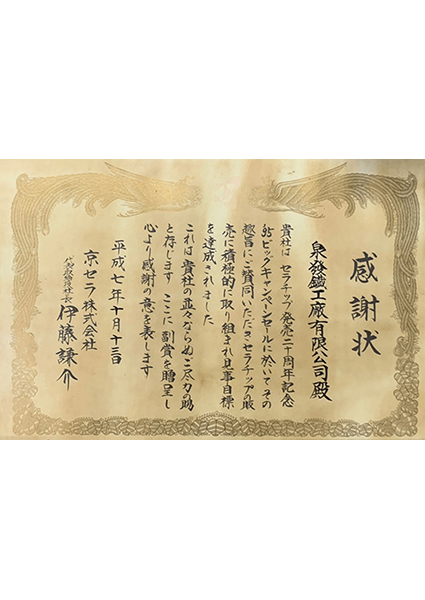 感謝状
泉發鐵工廠有限公司殿
貴社は セラチップ発売二十周年記念
95ビックキャンペーンセールに於いてその
趣旨にご賛同いただきセラチップの販
売に積極的に取り組まれ見事目標
を達成されました
これは貴社の並々ならぬご尽力の賜
と存じます ここに 副賞を贈呈し
心より感謝の意を表します
平成七年十月十三日
京セラ株式会社
代表取締役社長 伊藤謙介